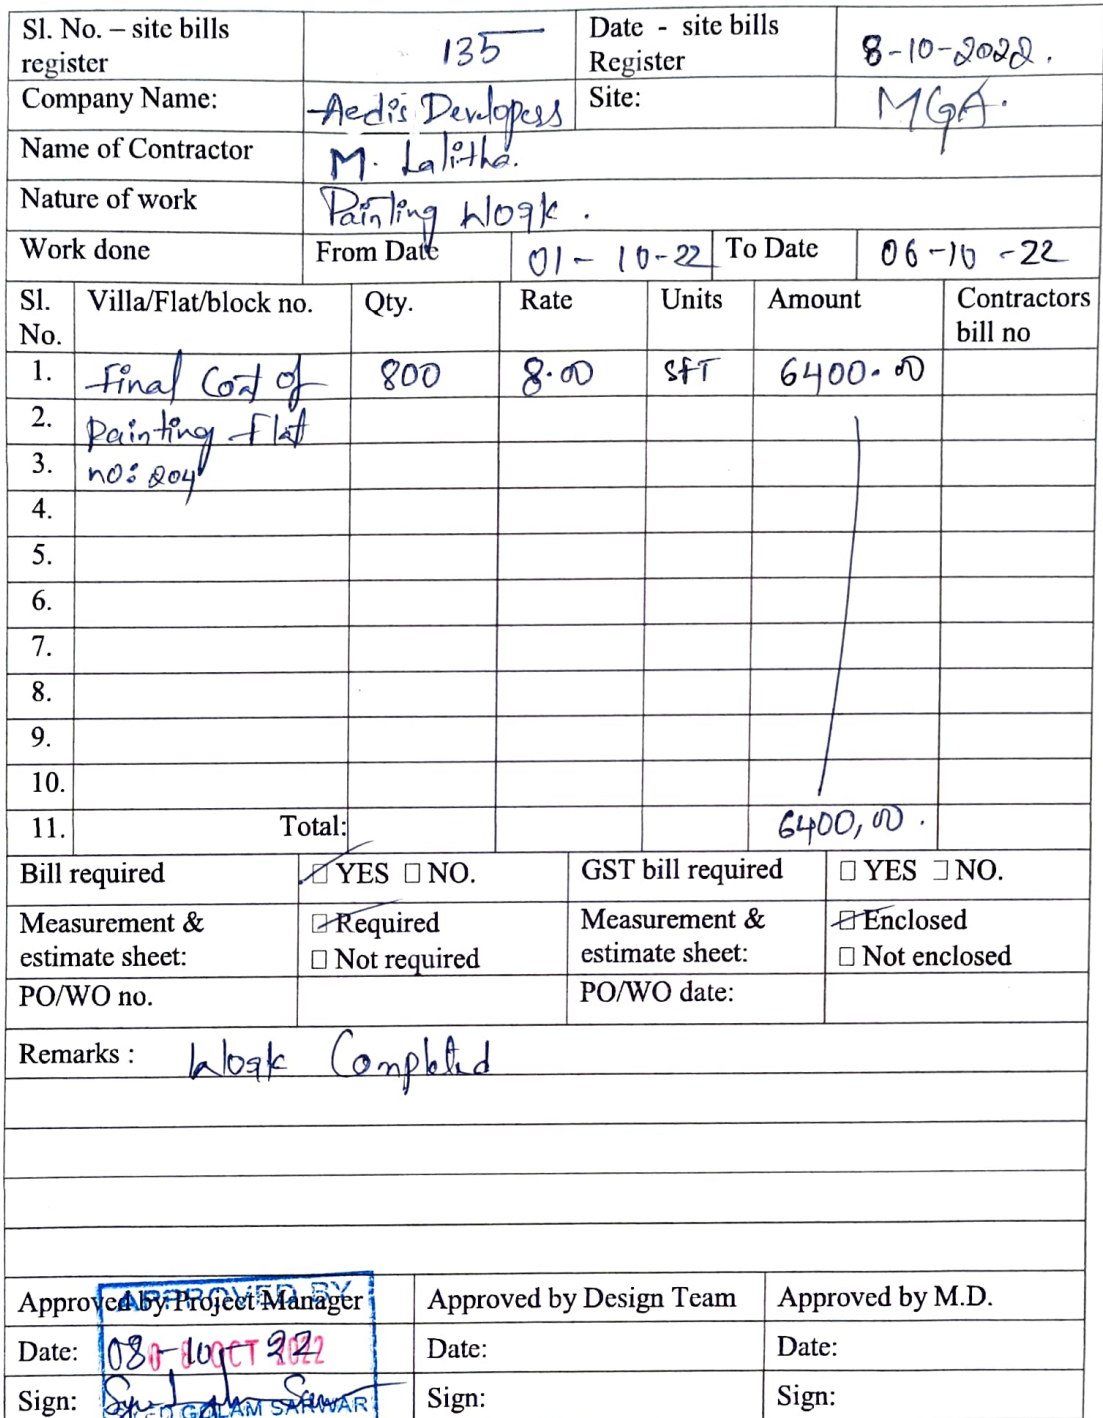 Sl. No. – site bills register 135 Date - site bills Register 8-10-2022.
Company Name: Aedis Developers Site: MGA.
Name of Contractor M. Lalitha.
Nature of work Painting Work.
Work done From Date 01-10-22 To Date 06-10-22
Sl. No. Villa/Flat/block no. Qty. Rate Units Amount Contractors bill no
1. Final Coat of 800 8.00 SFT 6400.00
2. Painting Flat
3. no: 204
4.
5.
6.
7.
8.
9.
10.
11. Total: 6400,00.
Bill required ☑ YES ☐ NO. GST bill required ☐ YES ☐ NO.
Measurement & estimate sheet: ☑ Required ☐ Not required Measurement & estimate sheet: ☑ Enclosed ☐ Not enclosed
PO/WO no. PO/WO date:
Remarks : Work Completed
Approved by Project Manager Approved by Design Team Approved by M.D.
APPROVED BY
Date: 08-10-22 Date: Date:
OCT 2022
Sign: Sign: Sign:
GOLAM SARWAR